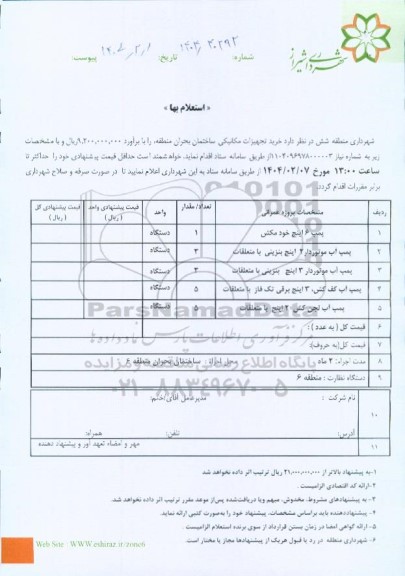 شهرداری شیراز
شماره: ۱۴۰۴/۳۰۲۹۲ تاریخ: ۱۴۰۴/۲/۱ پیوست:
« استعلام بها »
شهرداری منطقه شش در نظر دارد خرید تجهیزات مکانیکی ساختمان بحران منطقه، را با برآورد ۹,۲۰۰,۰۰۰,۰۰۰ریال و با مشخصات
زیر به شماره نیاز ۱۱۰۴۰۹۶۹۷۸۰۰۰۰۰۳از طریق سامانه ستاد اقدام نماید. خواهشمند است حداقل قیمت پیشنهادی خود را حداکثر تا
ساعت ۱۳:۰۰ مورخ ۱۴۰۴/۰۲/۰۷ از طریق سامانه ستاد به این شهرداری اعلام نمایید تا در صورت صرفه و صلاح شهرداری
برابر مقررات اقدام گردد.
ردیف مشخصات پروژه عمومی تعداد/ مقدار واحد قیمت پیشنهادی واحد (ریال) قیمت پیشنهادی کل (ریال)
۱ پمپ ۶ اینچ خود مکش ۱ دستگاه
۲ پمپ آب موتوردار ۴ اینچ بنزینی با متعلقات ۳ دستگاه
۳ پمپ آب موتوردار ۳ اینچ بنزینی با متعلقات ۲ دستگاه
۴ پمپ آب کف کش، ۳ اینچ برقی تک فاز با متعلقات ۵ دستگاه
۵ پمپ آب لجن کش ۲ اینچ با متعلقات ۵ دستگاه
۶ قیمت کل ( به عدد ) :
۷ قیمت کل(به حروف):
۸ مدت اجراء: ۲ ماه محل اجرا: ساختمان بحران منطقه ۶
۹ دستگاه نظارت : منطقه ۶
ParsNamadData
پایگاه اطلاع رسانی مناقصه و مزایده
۰۲۱-۸۸۳۴۹۶۷۰-۵
نام شرکت : مدیرعامل آقای/خانم:
۱۰
آدرس: تلفن: همراه:
۱۱ مهر و امضاء تعهد آور و پیشنهاد دهنده
۱-به پیشنهاد بالاتر از ۲۱,۰۰۰,۰۰۰,۰۰۰ ریال ترتیب اثر داده نخواهد شد
۲-ارائه کد اقتصادی الزامیست .
۳- به پیشنهادهای مشروط، مخدوش، مبهم ویا دریافت‌شده پس‌از موعد مقرر ترتیب اثر داده نخواهد شد.
۴- پیشنهاددهنده باید براساس مشخصات، پیشنهاد خود را به‌صورت کتبی ارائه نماید.
۵- ارائه گواهی امضا در زمان بستن قرارداد از سوی برنده استعلام الزامیست .
۶- شهرداری منطقه در رد یا قبول هریک از پیشنهادها مجاز یا مختار است.
Web Site : WWW.eshiraz.ir/zone6